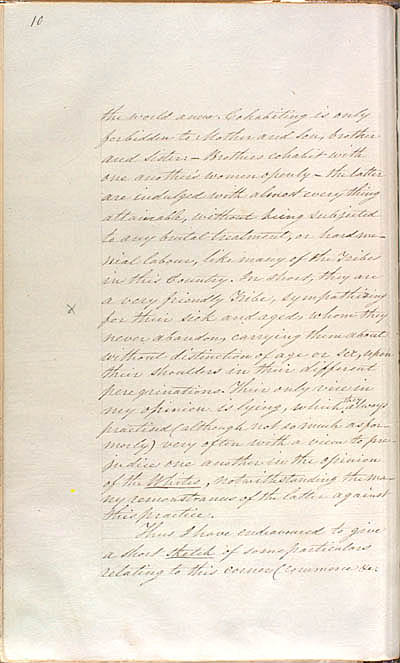 10
the world anew. Cohabiting is only
forbidden to Mother and son, brother
and Sister – Brothers cohabit with
one anothers women openly – the latter
are indulged with almost every thing
attainable, without being subjected
to any brutal treatment, or hard me-
nial labour, like many of the Tribes
in this Country. In short, they are
a very friendly Tribe, sympathizing
x for their sick and aged, whom they
never abandon, carrying them about
without distinction of age or sex, upon
their shoulders in their different
peregrinations. Their only vice in
my opinion is lying, which always
practised (although not so much as for-
merly) very often with a view to pre-
judice one another in the opinion
of the Whites, notwithstanding the ma-
ny remonstrances of the latter against
this practice.
Thus I have endeavoured to give
a short sketch of some particulars
relating to this corner (Commerce &c